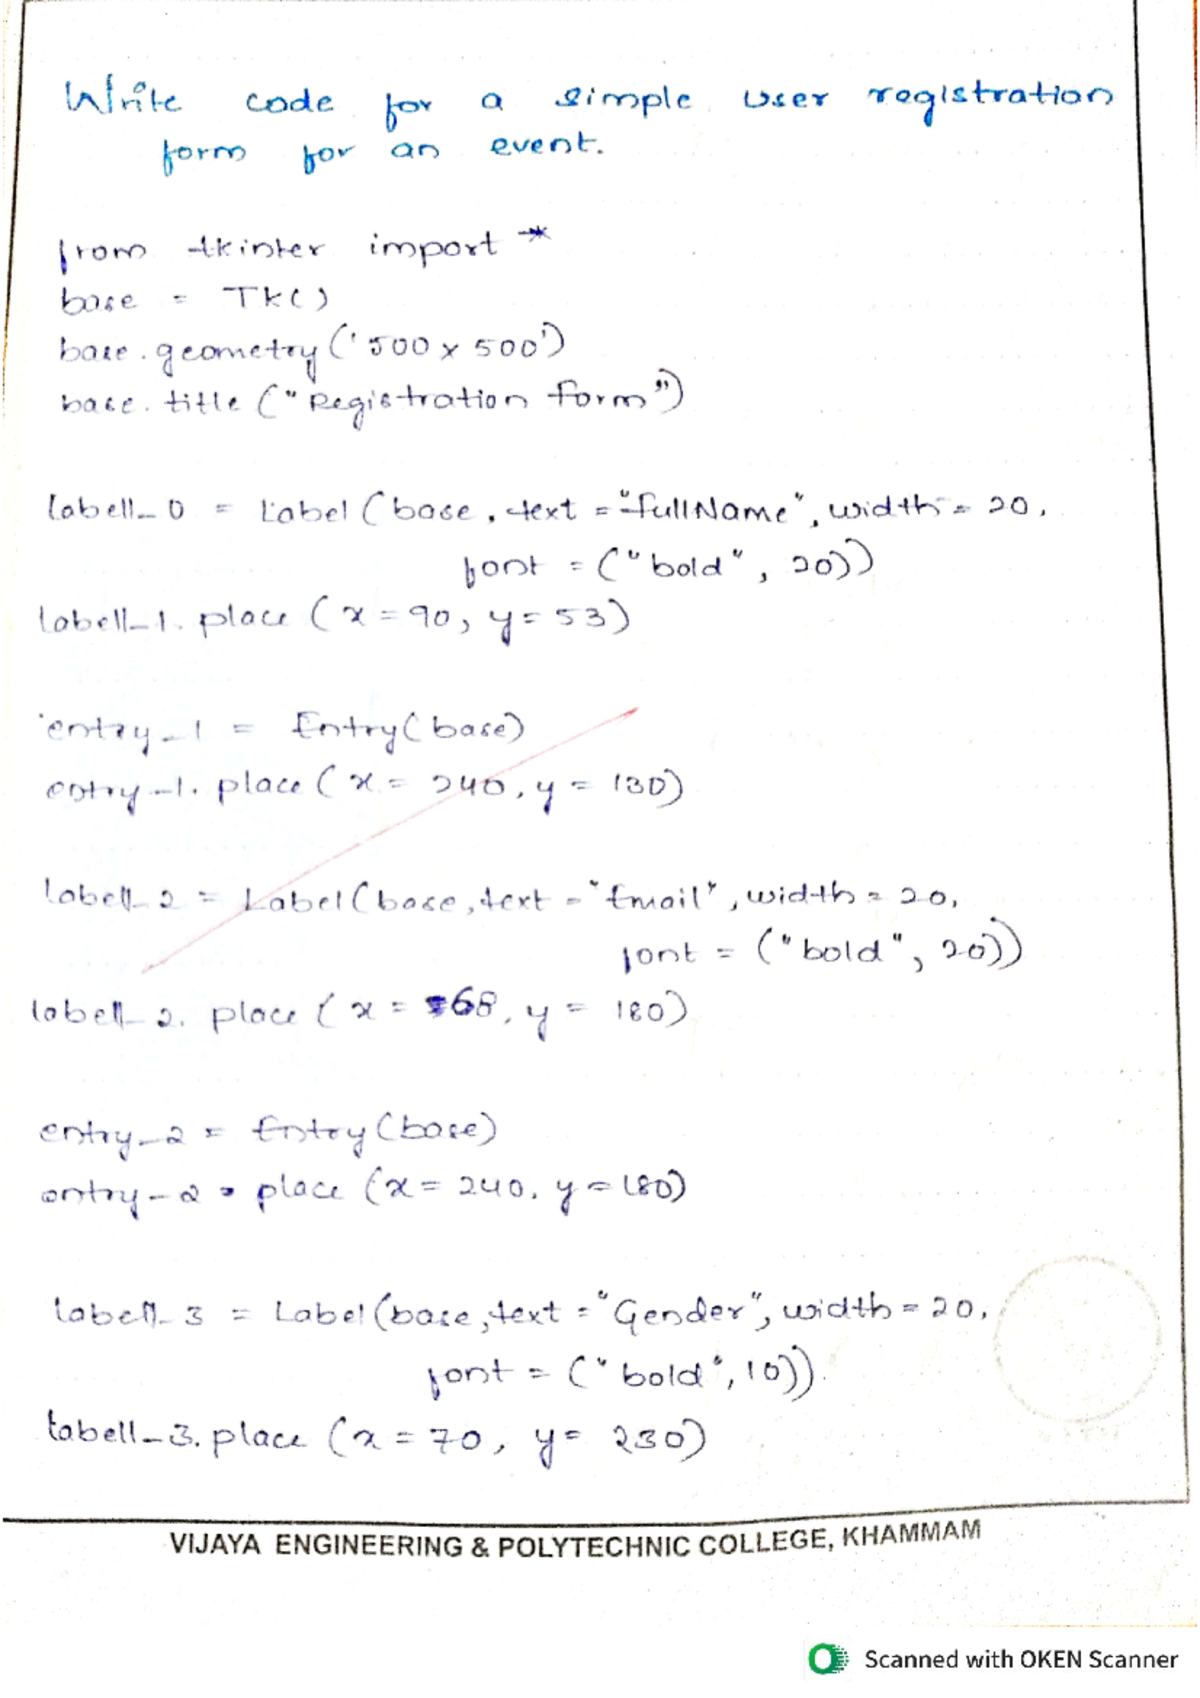 Write code for a simple user registration
form for an event.
from tkinter import *
base = Tk()
base.geometry('500x500')
base.title("Registration form")
labell_0 = Label(base, text = "FullName", width = 20,
font = ("bold", 20))
labell_1.place(x=90, y=53)
entry_1 = Entry(base)
entry_1.place(x = 240, y = 130)
labell_2 = Label(base, text = "Email", width = 20,
font = ("bold", 20))
labell_2.place(x = 68, y = 180)
entry_2 = Entry(base)
entry_2.place(x = 240, y = 180)
labell_3 = Label(base, text = "Gender", width = 20,
font = ("bold", 10))
labell_3.place(x = 70, y = 230)
VIJAYA ENGINEERING & POLYTECHNIC COLLEGE, KHAMMAM
Scanned with OKEN Scanner